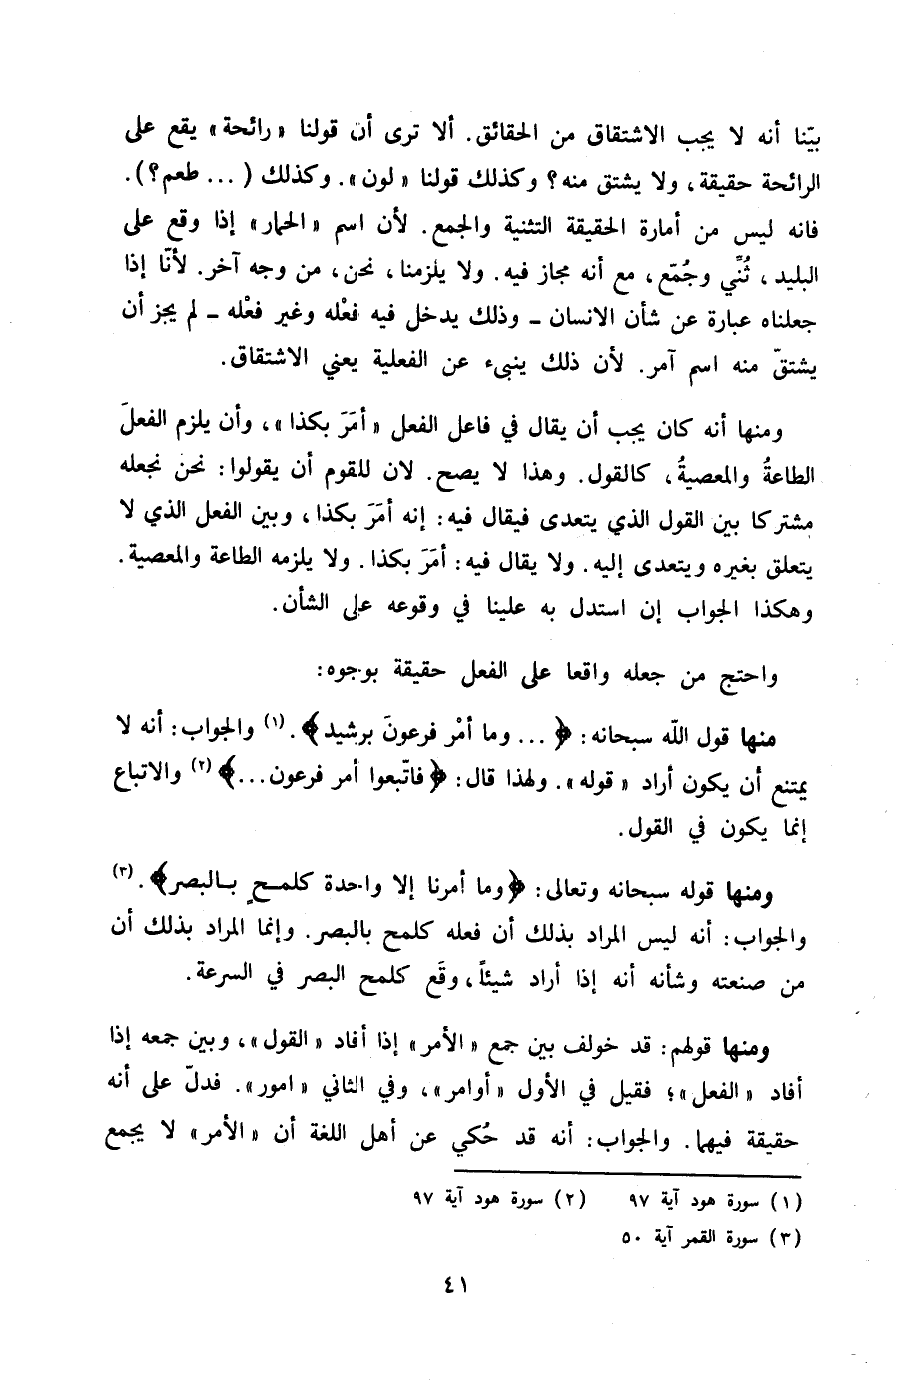 بيّنا أنه لا يجب الاشتقاق من الحقائق. ألا ترى أن قولنا «رائحة» يقع على
الرائحة حقيقة، ولا يشتق منه؟ وكذلك قولنا «لون». وكذلك (... طعم؟).
فانه ليس من أمارة الحقيقة التثنية والجمع. لأن اسم «الحمار» إذا وقع على
البليد، ثُنِّي وجُمّع، مع أنه مجاز فيه. ولا يلزمنا، نحن، من وجه آخر. لأنّا إذا
جعلناه عبارة عن شأن الانسان ــ وذلك يدخل فيه فعْله وغير فعْله ــ لم يجز أن
يشتقّ منه اسم آمر. لأن ذلك ينبىء عن الفعلية يعني الاشتقاق.
ومنها أنه كان يجب أن يقال في فاعل الفعل «أمَرَ بكذا»، وأن يلزم الفعلَ
الطاعةُ والمعصيةُ، كالقول. وهذا لا يصح. لان للقوم أن يقولوا: نحن نجعله
مشتركا بين القول الذي يتعدى فيقال فيه: إنه أمَرَ بكذا، وبين الفعل الذي لا
يتعلق بغيره ويتعدى إليه. ولا يقال فيه: أمَرَ بكذا. ولا يلزمه الطاعة والمعصية.
وهكذا الجواب إن استدل به علينا في وقوعه على الشأن.
واحتج من جعله واقعا على الفعل حقيقة بوجوه:
منها قول اللّه سبحانه: ﴿... وما أمْر فرعونَ برشيد﴾. (١) والجواب: أنه لا
يمتنع أن يكون أراد «قوله». ولهذا قال: ﴿فاتّبعوا أمر فرعون...﴾ (٢) والاتباع
إنما يكون في القول.
ومنها قوله سبحانه وتعالى: ﴿وما أمرنا إلا واحدة كلمـحٍ بـالبصر﴾. (٣)
والجواب: أنه ليس المراد بذلك أن فعله كلمح بالبصر. وإنما المراد بذلك أن
من صنعته وشأنه أنه إذا أراد شيئاً، وقَع كلمح البصر في السرعة.
ومنها قولهم: قد خولف بين جمع «الأمر» إذا أفاد «القول»، وبين جمعه إذا
أفاد «الفعل»؛ فقيل في الأول «أوامر»، وفي الثاني «امور». فدلّ على أنه
حقيقة فيهما. والجواب: أنه قد حُكي عن أهل اللغة أن «الأمر» لا يجمع
(١) سورة هود آية ٩٧ (٢) سورة هود آية ٩٧
(٣) سورة القمر آية ٥٠
٤١